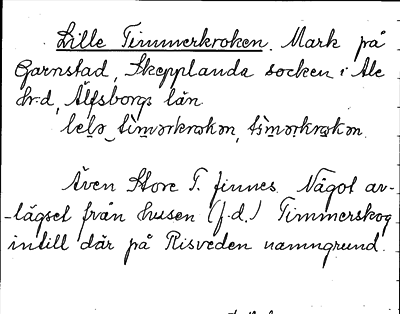 Lille Timmerkroken. Mark på
Garnstad, Skepplanda socken i Ale
hr-d, Älfsborgs län
lelə tìmərkrokən, tìmərkrokən.
Även Store T. finnes. Något av-
-lägset från husen (f.d.) Timmerskog
intill där på Risveden namngrund.